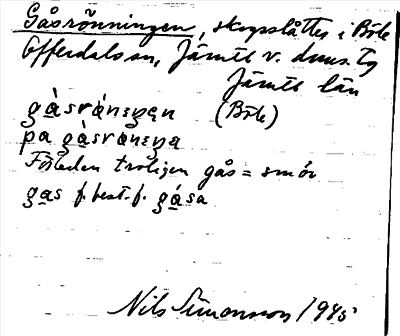 Gåsrönningen, skogsslåtter i Böle
Offerdals sn, Jämtl. v. doms. tg
Jämtl. län
gàsrǻnɛŋən (Böle)
pa gàsrǻnɛŋa
Förleden troligen gås = smör
gas f. best. f. gásа
Nils Simonsson 1945